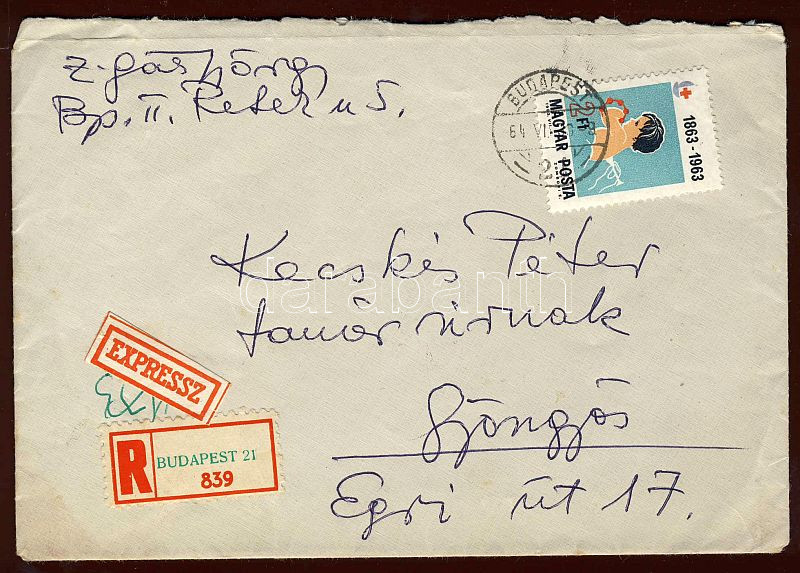 Z. Gáspár Györgyi
Bp. II. Keleti u 5.
BUDAPEST
64 VII
MAGYAR POSTA
2 Ft
1863-1963
Kecskés Péter
tanár úrnak
Gyöngyös
Egri út 17.
EXPRESSZ
R BUDAPEST 21
839
darabanth